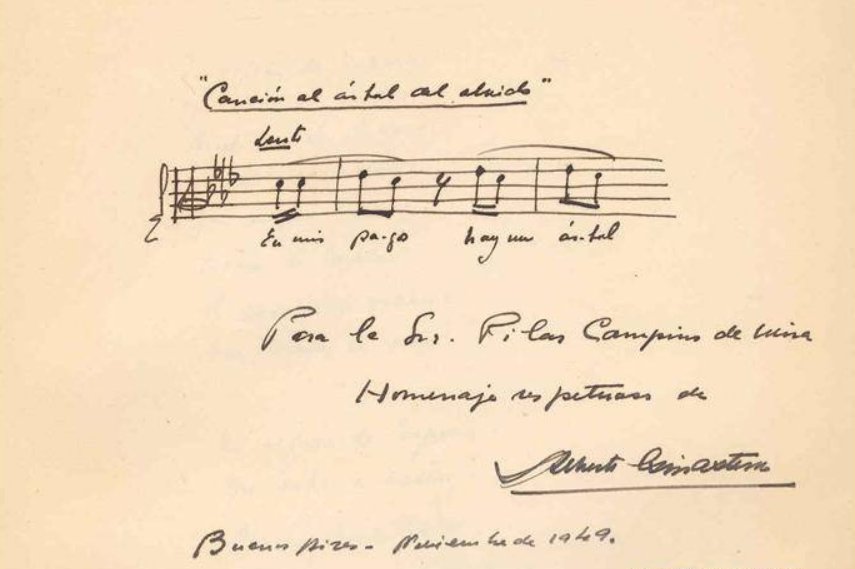 "Canción al árbol del olvido"
Lento
En mis pa-go hay un ár-bol
Para la Sra. Pilar Campins de Mira
Homenaje respetuoso de
Alberto Ginastera
Buenos Aires - Noviembre de 1949.